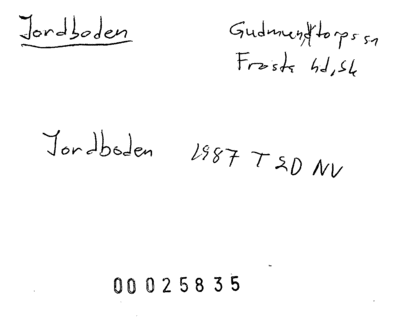 Jordboden
Gudmuntorps sn
Frosta hd, Sk
Jordboden 1987 T 2D NV
00025835